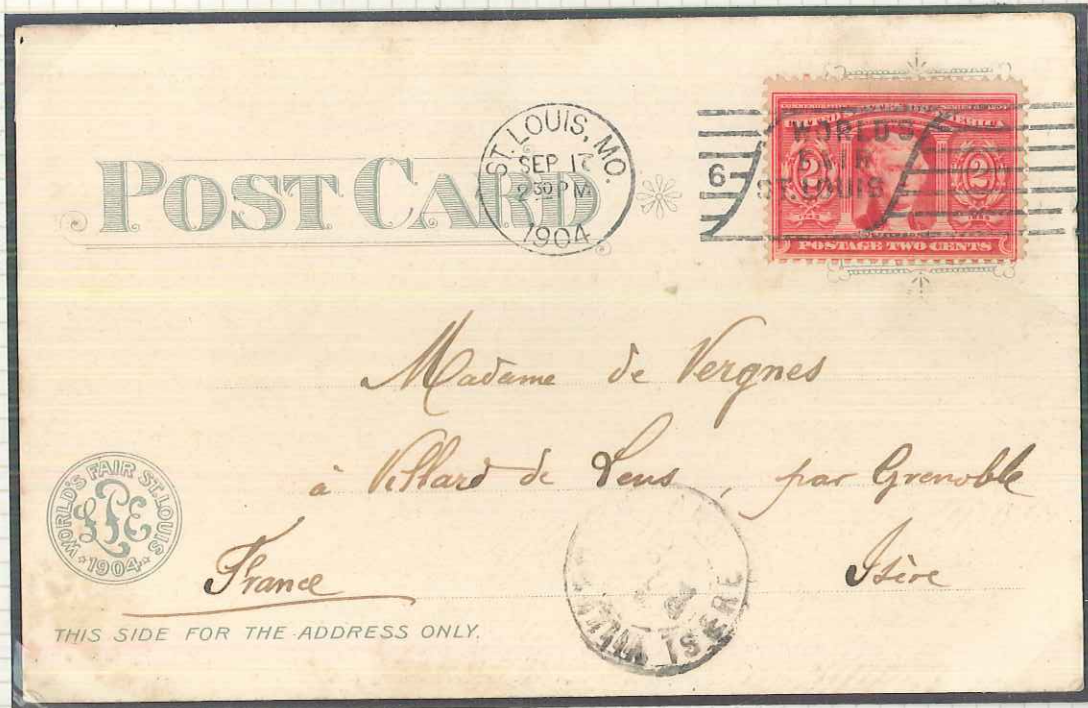 POST CARD
ST. LOUIS, MO.
SEP 17
2 30 PM
1904
6
WORLD'S
FAIR
ST. LOUIS
2 2
POSTAGE TWO CENTS
Madame de Vergnes
à Villard de Lens, par Grenoble
Isère
France
WORLD'S FAIR ST. LOUIS
LPE
1904
THIS SIDE FOR THE ADDRESS ONLY.
ISERE